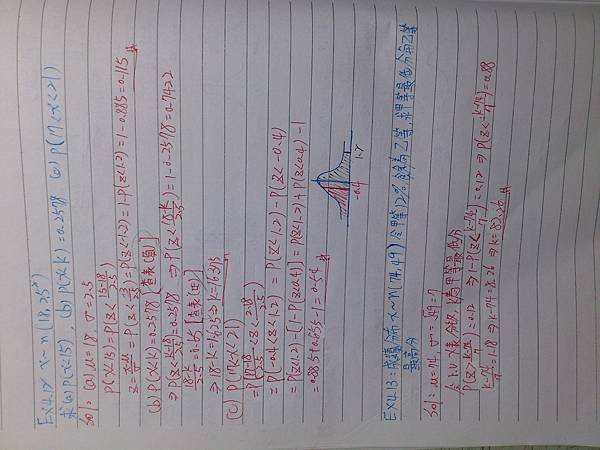 EX4.12 x~n(18,2.5²)
求(a)P(x<15), (b)P(x<k)=0.2578 (c)P(17<x<21)
sol: (a)μ=18, σ=2.5
P(x<15)=P(z<15-18/2.5)
=P(z<-1.2)=1-P(z<1.2)=1-0.885=0.115
(b)P(x<k)=0.2578[查表(負)]
⇒P(z<k-18/2.5)=0.2578 ⇒P(z<18-k/2.5)=1-0.2578=0.7422
18-k/2.5=0.65[查表(正)]
⇒18-k=1.625⇒k=16.375
(c)P(17<x<21)
=P(17-18/2.5<z<21-18/2.5)
=P(-0.4<z<1.2)=P(z<1.2)-P(z<-0.4)
=P(z<1.2)-[1-P(z≤0.4)]=P(z<1.2)+P(z<0.4)-1
=0.885+0.655-1=0.54
-0.4 1.2
EX4.13:成績分布x~n(74,49)
最高分
sol: μ=74, σ=√49=7
P(z>k-74/7)=0.12 ⇒1-P(z<k-74/7)=0.12 ⇒P(z<k-74/7)=0.88
k-74/7=1.18⇒k-74=8.26⇒k=82.26